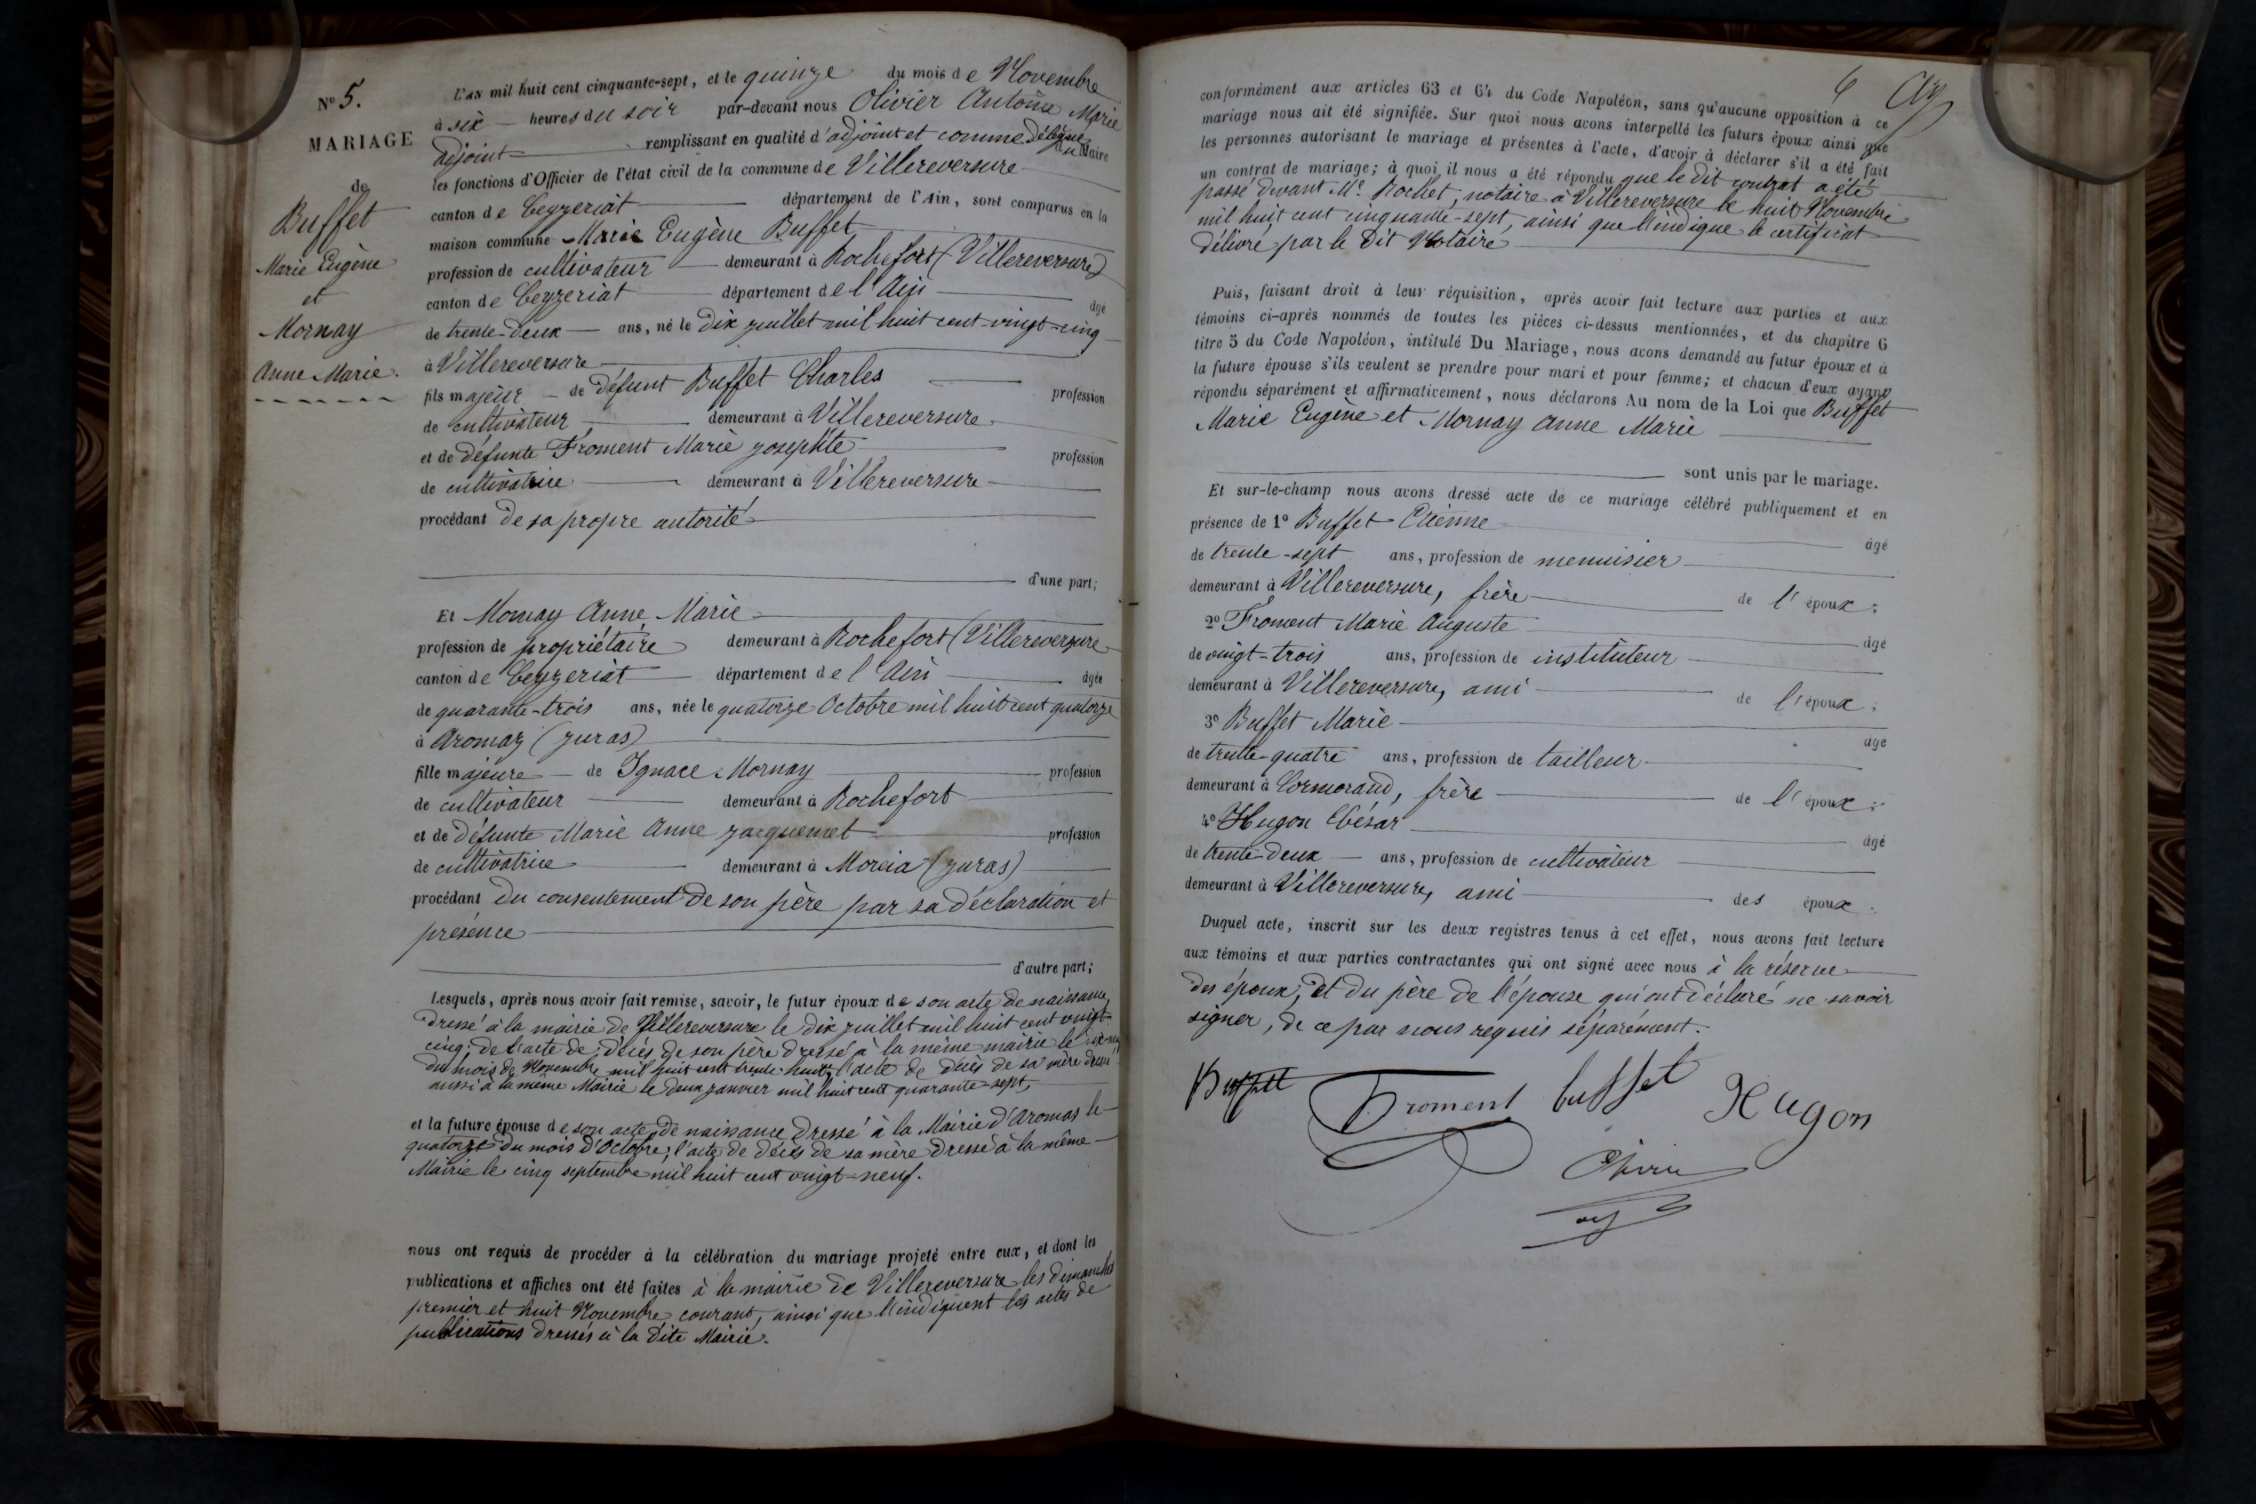 N° 5.
MARIAGE
de
Buffet
Marie Eugène
et
Mornay
Anne Marie.
L'AN mil huit cent cinquante-sept, et le quinze du mois de Novembre
à six heures du soir par-devant nous Olivier Antoine Marie
adjoint remplissant en qualité d'adjoint et comme délégué du Maire
les fonctions d'Officier de l'état civil de la commune de Villereversure
canton de Ceyzeriat département de l'Ain, sont comparus en la
maison commune Marie Eugène Buffet
profession de cultivateur demeurant à Rochefort (Villereversure)
canton de Ceyzeriat département de l'Ain âgé
de trente-deux ans, né le dix juillet mil huit cent vingt-cinq
à Villereversure
fils majeur de défunt Buffet Charles profession
de cultivateur demeurant à Villereversure
et de défunte Froment Marie Josephte profession
de cultivatrice demeurant à Villereversure
procédant de sa propre autorité
d'une part;
Et Mornay Anne Marie
profession de propriétaire demeurant à Rochefort (Villereversure
canton de Ceyzeriat département de l'Ain âgée
de quarante-trois ans, née le quatorze Octobre mil huit cent quatorze
à Aromaz (Juras)
fille majeure de Ignace Mornay profession
de cultivateur demeurant à Rochefort
et de défunte Marie Anne Jacquemet profession
de cultivatrice demeurant à Morcia (Juras)
procédant du consentement de son père par sa déclaration et
présence
d'autre part;
Lesquels, après nous avoir fait remise, savoir, le futur époux de son acte de naissance,
dressé à la mairie de Villereversure le dix juillet mil huit cent vingt-
cinq; de l'acte de décès de son père dressé à la même mairie le
du mois de Novembre mil huit cent trente-huit, l'acte de décès de sa mère dressé
aussi à la même Mairie le deux janvier mil huit cent quarante-sept,
et la future épouse de son acte de naissance dressé à la Mairie d'Aromas le
quatorze du mois d'Octobre; l'acte de décès de sa mère dressé à la même
Mairie le cinq septembre mil huit cent vingt-neuf.
nous ont requis de procéder à la célébration du mariage projeté entre eux, et dont les
publications et affiches ont été faites à la mairie de Villereversure les dimanches
premier et huit Novembre courant, ainsi que l'indiquent les actes de
publications dressés à la dite Mairie.
6
conformément aux articles 63 et 64 du Code Napoléon, sans qu'aucune opposition à ce
mariage nous ait été signifiée. Sur quoi nous avons interpellé les futurs époux ainsi que
les personnes autorisant le mariage et présentes à l'acte, d'avoir à déclarer s'il a été fait
un contrat de mariage; à quoi il nous a été répondu que le dit contrat a été
passé devant Me Rochet, notaire à Villereversure le huit Novembre
mil huit cent cinquante-sept, ainsi que l'indique le certificat
délivré par le dit Notaire
Puis, faisant droit à leur réquisition, après avoir fait lecture aux parties et aux
témoins ci-après nommés de toutes les pièces ci-dessus mentionnées, et du chapitre 6
titre 5 du Code Napoléon, intitulé Du Mariage, nous avons demandé au futur époux et à
la future épouse s'ils veulent se prendre pour mari et pour femme; et chacun d'eux ayant
répondu séparément et affirmativement, nous déclarons Au nom de la Loi que Buffet
Marie Eugène et Mornay Anne Marie
sont unis par le mariage.
Et sur-le-champ nous avons dressé acte de ce mariage célébré publiquement et en
présence de 1° Buffet Etienne âgé
de trente-sept ans, profession de menuisier
demeurant à Villereversure, frère de l'époux;
2° Froment Marie Auguste âgé
de vingt-trois ans, profession de instituteur
demeurant à Villereversure, ami de l'époux;
3° Buffet Marie âgé
de trente-quatre ans, profession de tailleur
demeurant à Cormorand, frère de l'époux;
4° Hugon César âgé
de trente-deux ans, profession de cultivateur
demeurant à Villereversure, ami des époux.
Duquel acte, inscrit sur les deux registres tenus à cet effet, nous avons fait lecture
aux témoins et aux parties contractantes qui ont signé avec nous à la réserve
des époux, et du père de l'épouse qui ont déclaré ne savoir
signer, de ce par nous requis séparément.
Buffet Froment buffet Hugon